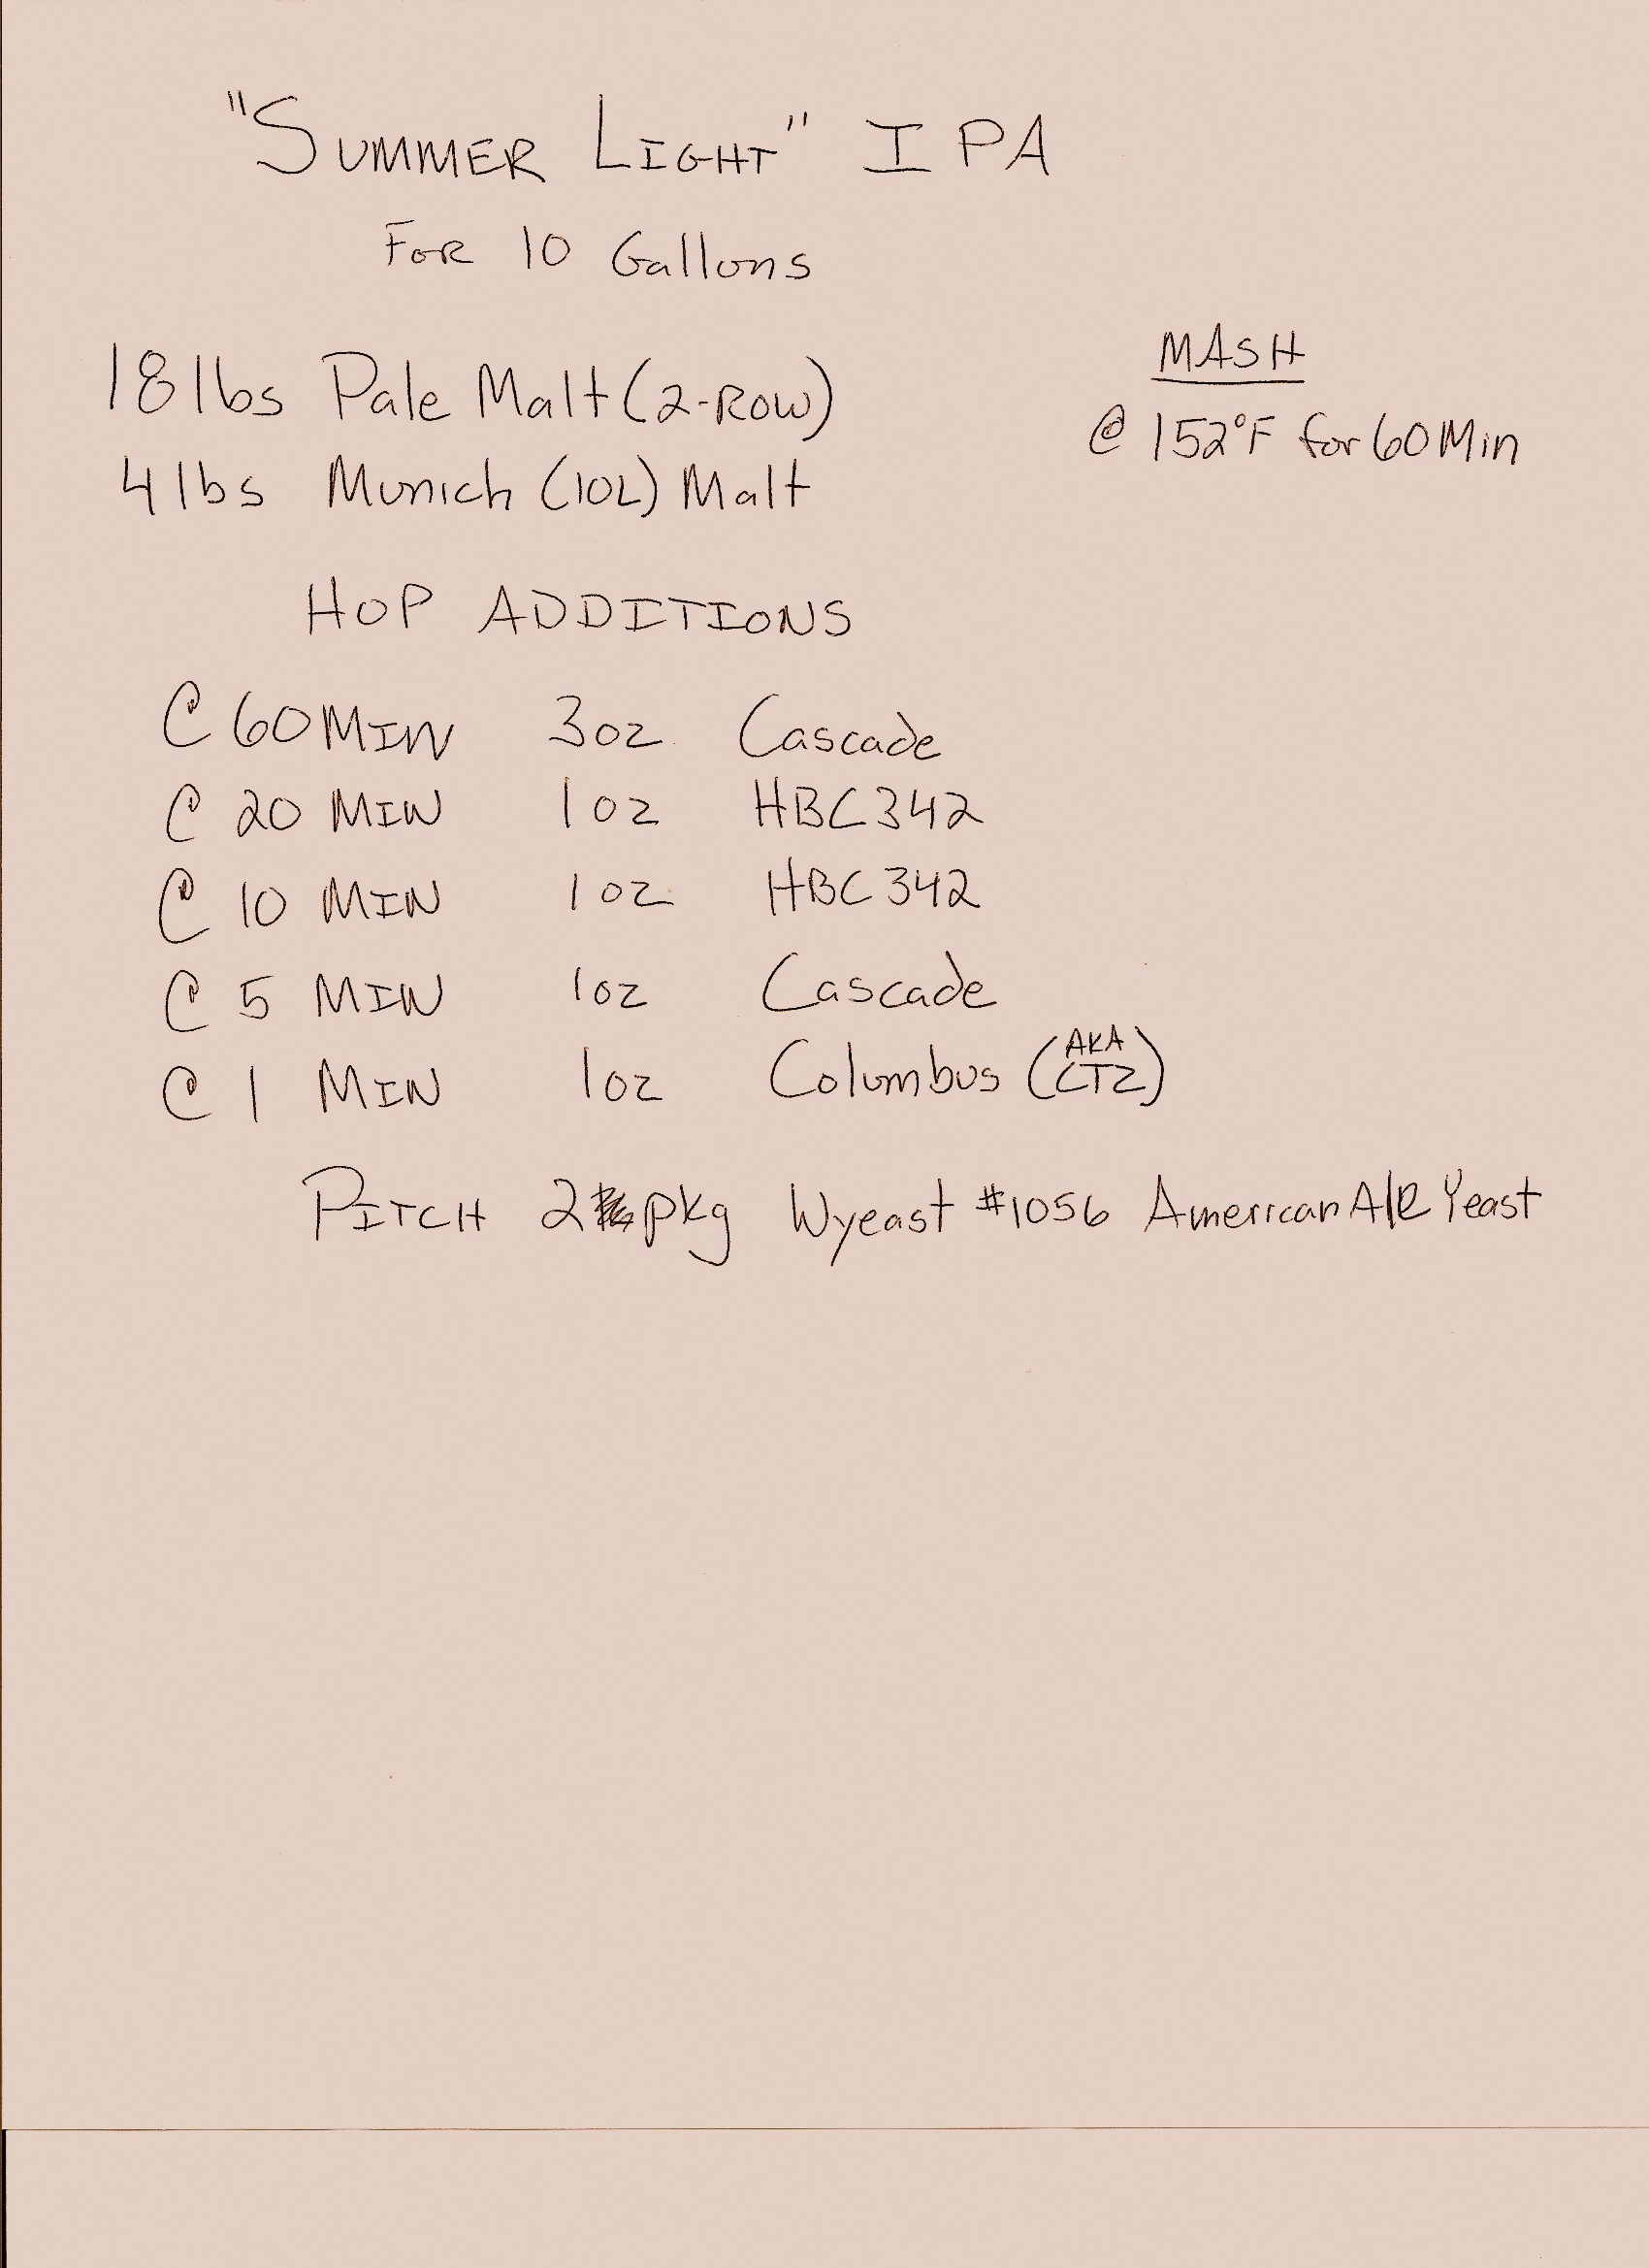 "SUMMER LIGHT" IPA
FOR 10 Gallons
18 lbs Pale Malt (2-ROW)
4 lbs Munich (10L) Malt
MASH
@ 152°F for 60 Min
HOP ADDITIONS
@ 60 MIN 3oz Cascade
@ 20 MIN 1oz HBC342
@ 10 MIN 1oz HBC342
@ 5 MIN 1oz Cascade
@ 1 MIN 1oz Columbus (AKA CTZ)
PITCH 2 pkg Wyeast #1056 American Ale Yeast